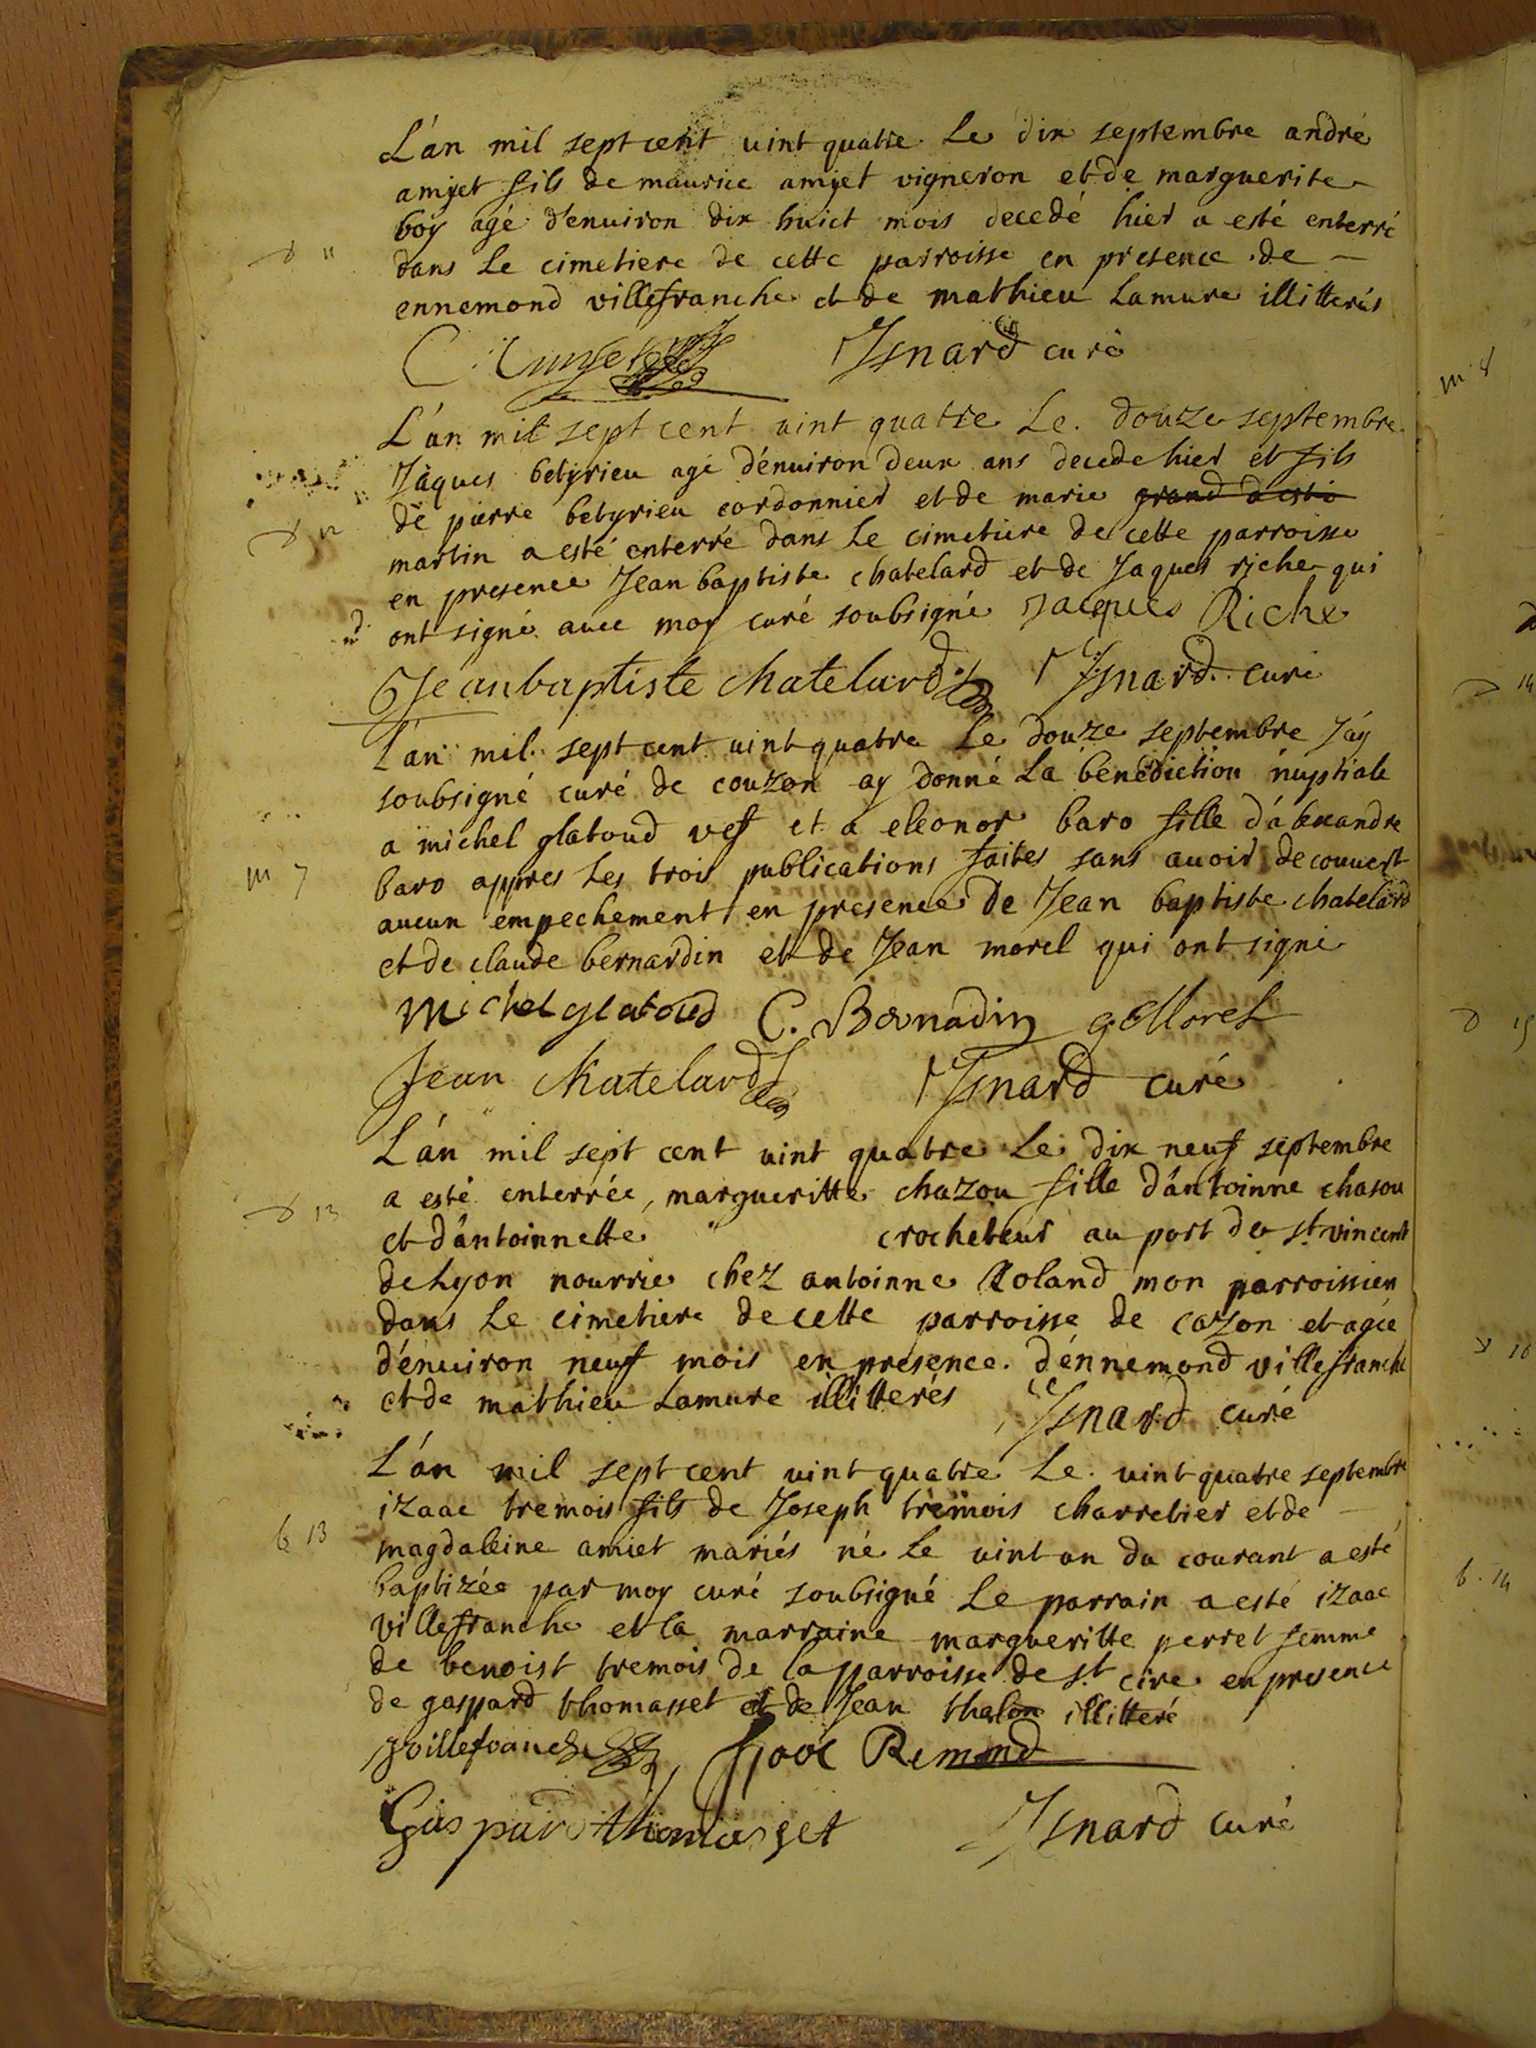 L'an mil sept cent uint quatre Le dix septembre andré
amyet fils de maurice amyet vigneron et de marguerite
boy agé d'enuiron dix huict mois decedé hier a esté enterré
d 11
dans Le cimetiere de cette parroisse en presence de
ennemond villefranche et de mathieu Lamure illitterés
Isnard curé
L'an mil sept cent uint quatre Le douze septembre
Jaques betyrieu agé d'enuiron deux ans decede hier et fils
d 12
de pierre betyrieu cordonnier et de marie grand
martin a esté enterré dans Le cimetiere de cette parroisse
en presence Jean baptiste chatelard et de Jaques riche qui
ont signé auec moy curé soubsigné Jacques Riche
Jean baptiste chatelard Isnard curé
L'an mil sept cent uint quatre Le douze septembre J'ay
soubsigné curé de couzon ay donné La benediction nuptiale
a michel glatoud vef et a eleonor baro fille d'alexandre
m 7
baro appres Les trois publications faites sans auoir decouuert
aucun empechement en presence de Jean baptiste chatelard
et de claude bernardin et de Jean morel qui ont signé
michel glatoud C. Bernadin Morel
Jean chatelard Isnard curé
L'an mil sept cent uint quatre Le dix neuf septembre
d 13
a esté enterrée, margueritte chazou fille d'antoinne chasou
et d'antoinnette crocheteur au port de st vincent
de Lyon nourrie chez antoinne Roland mon parroissien
dans Le cimetiere de cette parroisse de cozon et agée
d'enuiron neuf mois en presence d'ennemond villefranche
et de mathieu Lamure illitterés Isnard curé
L'an mil sept cent uint quatre Le uint quatre septembre
izaac tremois fils de Joseph tremois charretier et de
b 13
magdaleine amiet mariés né Le uint un du courant a esté
baptizée par moy curé soubsigné Le parrain a esté izaac
villefranche et la marraine margueritte perret femme
de benoist tremois de la parroisse de st cire en presence
de gaspard thomasset et de Jean thalon illitteré
villefranche Remond
Gaspard thomasset Isnard curé
m 8
14
d 15
16
b 14